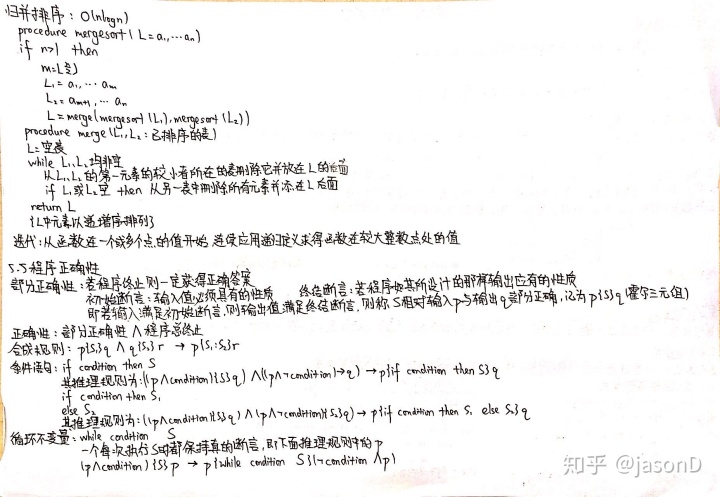 归并排序：O(nlogn)
procedure mergesort(L=a₁,…aₙ)
if n>1 then
m=⌊n/2⌋
L₁=a₁,…aₘ
L₂=aₘ₊₁,…aₙ
L=merge(mergesort(L₁),mergesort(L₂))
procedure merge(L₁,L₂：已排序的表)
L=空表
while L₁,L₂均非空
从L₁,L₂的第一元素的较小者所在的表删除它并放在L的后面
if L₁或L₂空 then 从另一表中删除所有元素并添在L后面
return L
{L中元素以递增序排列}
迭代：从函数在一个或多个点的值开始,连续应用递归定义求得函数在较大整数点处的值
5.5程序正确性
部分正确性：若程序终止则一定获得正确答案
初始断言：输入值必须具有的性质 终结断言：若程序按其所设计的那样输出应有的性质
即若输入满足初始断言,则输出值满足终结断言,则称S相对输入p与输出q部分正确,记为p{S}q(霍尔三元组)
正确性：部分正确性∧程序总终止
合成规则：p{S₁}q ∧ q{S₂}r → p{S₁;S₂}r
条件语句：if condition then S
其推理规则为：((p∧condition){S}q) ∧((p∧¬condition)→q) → p{if condition then S}q
if condition then S₁
else S₂
其推理规则为：((p∧condition){S₁}q) ∧ (p∧¬condition){S₂}q) → p{if condition then S₁ else S₂}q
循环不变量：while condition S
一个每次执行S时都保持真的断言,即下面推理规则中的p
(p∧condition){S}p → p{while condition S}(¬condition∧p)
知乎 @jasonD